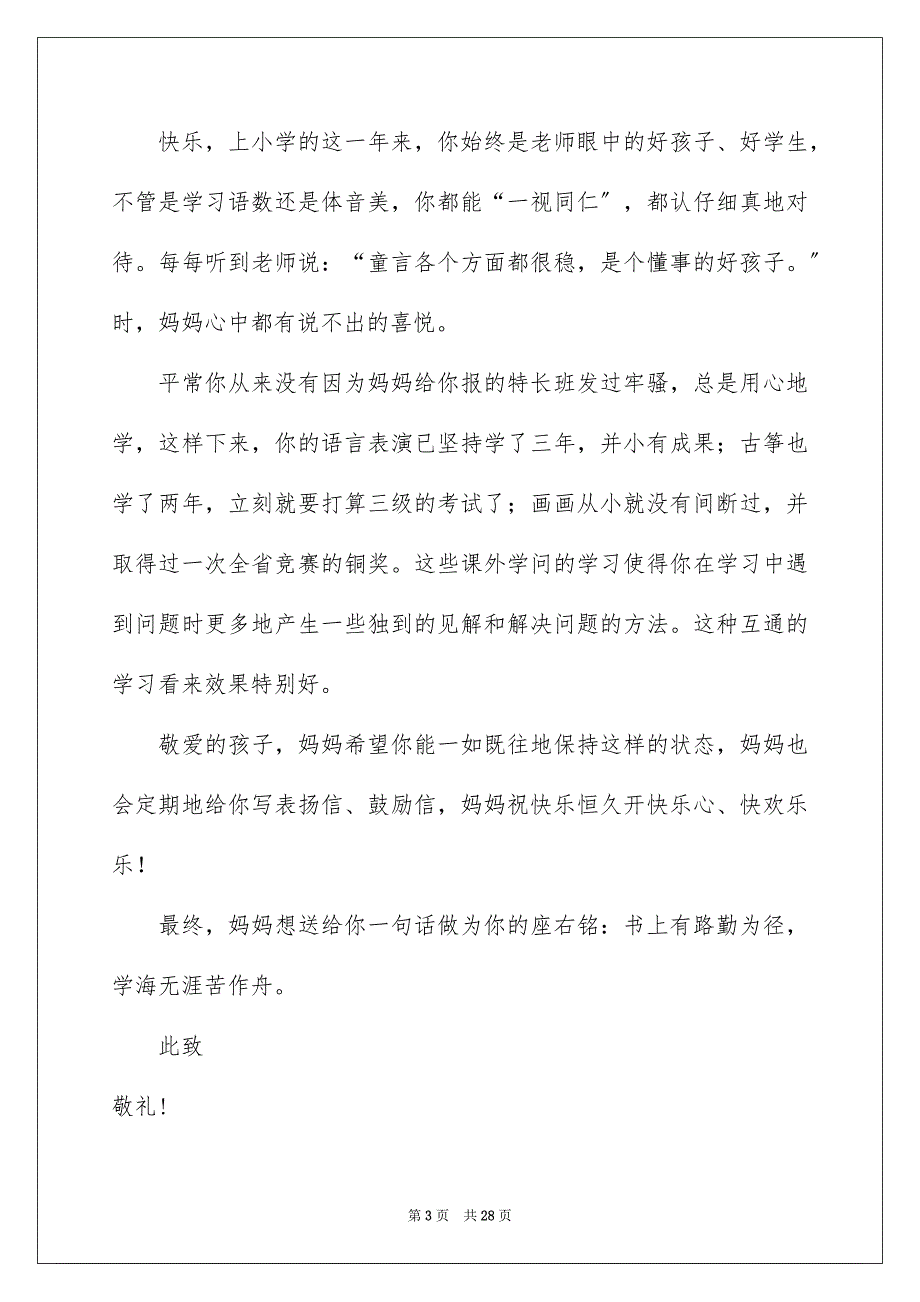 快乐，上小学的这一年来，你始终是老师眼中的好孩子、好学生，
不管是学习语数还是体音美，你都能“一视同仁〞，都认仔细真地对
待。每每听到老师说：“童言各个方面都很稳，是个懂事的好孩子。〞
时，妈妈心中都有说不出的喜悦。
平常你从来没有因为妈妈给你报的特长班发过牢骚，总是用心地
学，这样下来，你的语言表演已坚持学了三年，并小有成果；古筝也
学了两年，立刻就要打算三级的考试了；画画从小就没有间断过，并
取得过一次全省竞赛的铜奖。这些课外学问的学习使得你在学习中遇
到问题时更多地产生一些独到的见解和解决问题的方法。这种互通的
学习看来效果特别好。
敬爱的孩子，妈妈希望你能一如既往地保持这样的状态，妈妈也
会定期地给你写表扬信、鼓励信，妈妈祝快乐恒久开快乐心、快欢乐
乐！
最终，妈妈想送给你一句话做为你的座右铭：书上有路勤为径，
学海无涯苦作舟。
此致
敬礼！
第 3 页 共 28 页